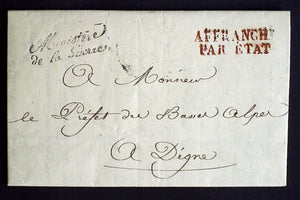 Ministère
de la Guerre
AFFRANCHI
PAR ETAT
A Monsieur
le Préfet des Basses Alpes
A Digne